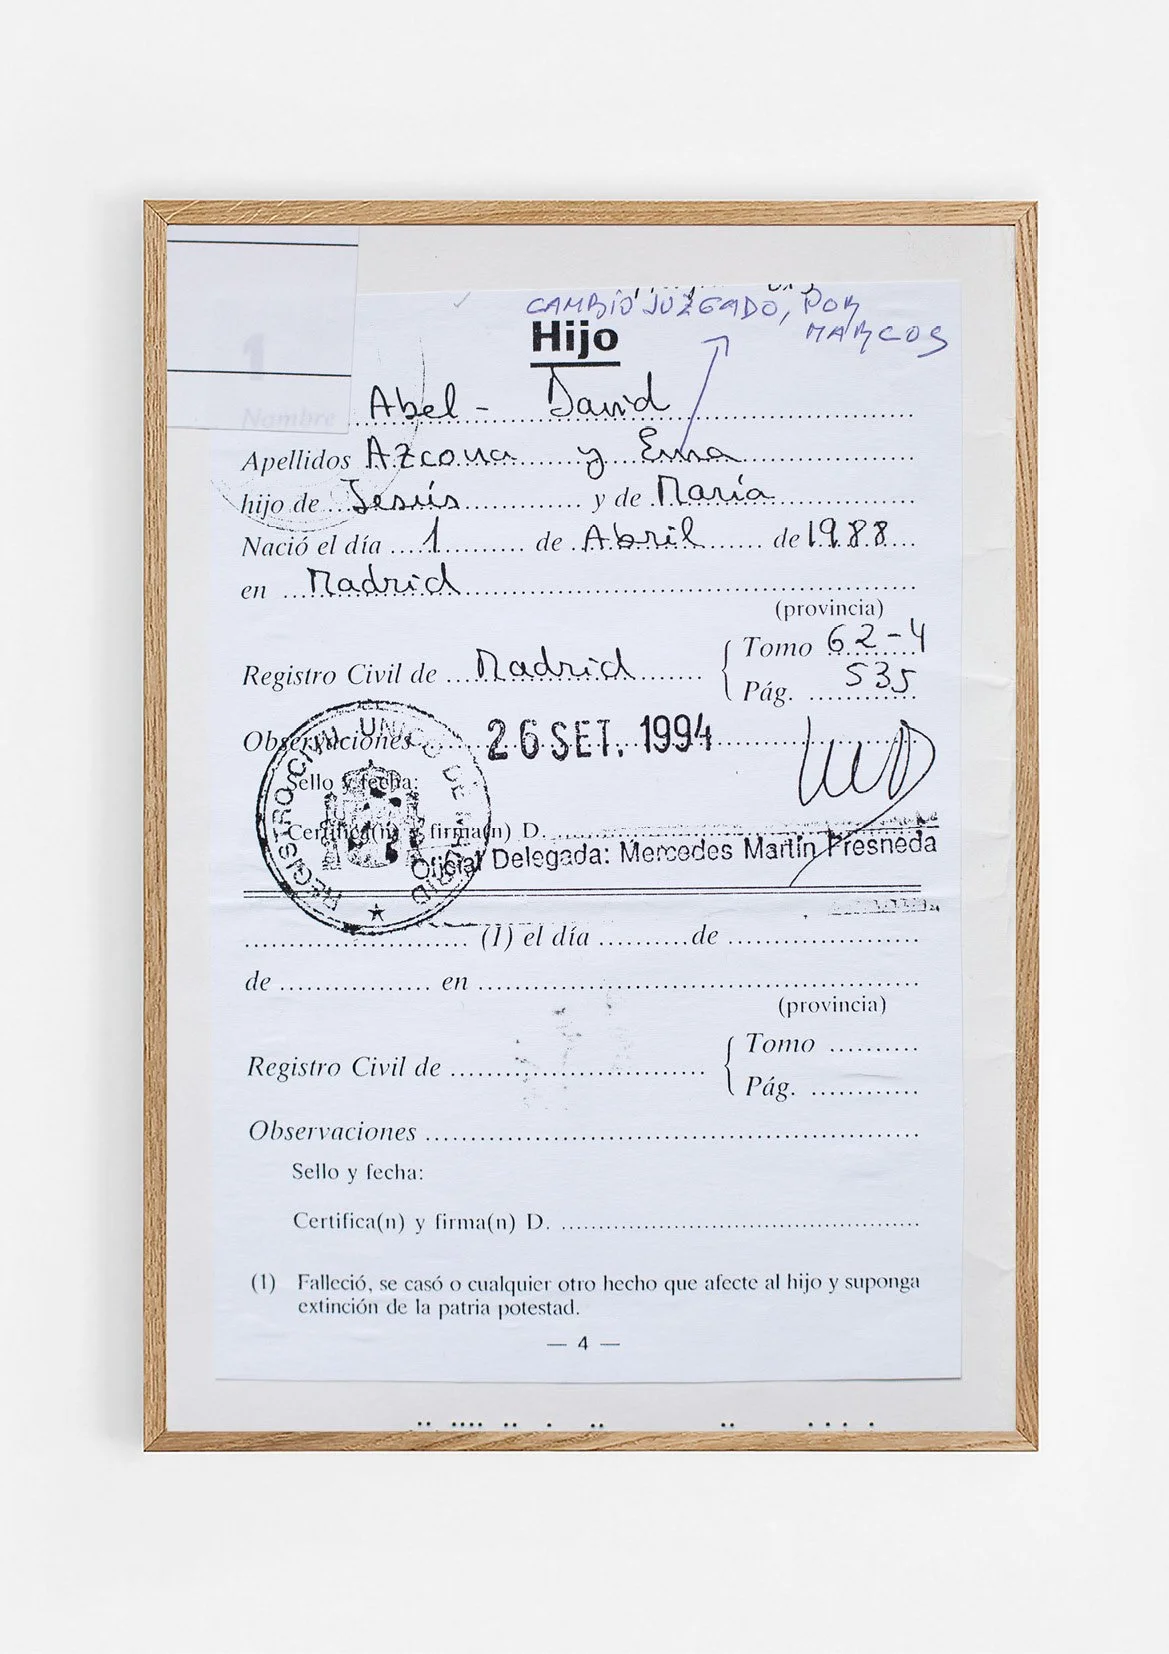 CAMBIO JUZGADO, POR
MARCOS
Hijo
1
Nombre Abel - David
Apellidos Azcona y Ema
hijo de Jesús y de María
Nació el día 1 de Abril de 1988
en Madrid
(provincia)
Registro Civil de Madrid
Tomo 62-4
Pág. 535
Observaciones 26 SET. 1994
Sello y fecha:
Certifica(n) y firma(n) D.
Oficial Delegada: Mercedes Martín Fresneda
REGISTRO CIVIL UNICO DE MADRID
(1) el día de
de en
(provincia)
Registro Civil de
Tomo
Pág.
Observaciones
Sello y fecha:
Certifica(n) y firma(n) D.
(1) Falleció, se casó o cualquier otro hecho que afecte al hijo y suponga
extinción de la patria potestad.
— 4 —